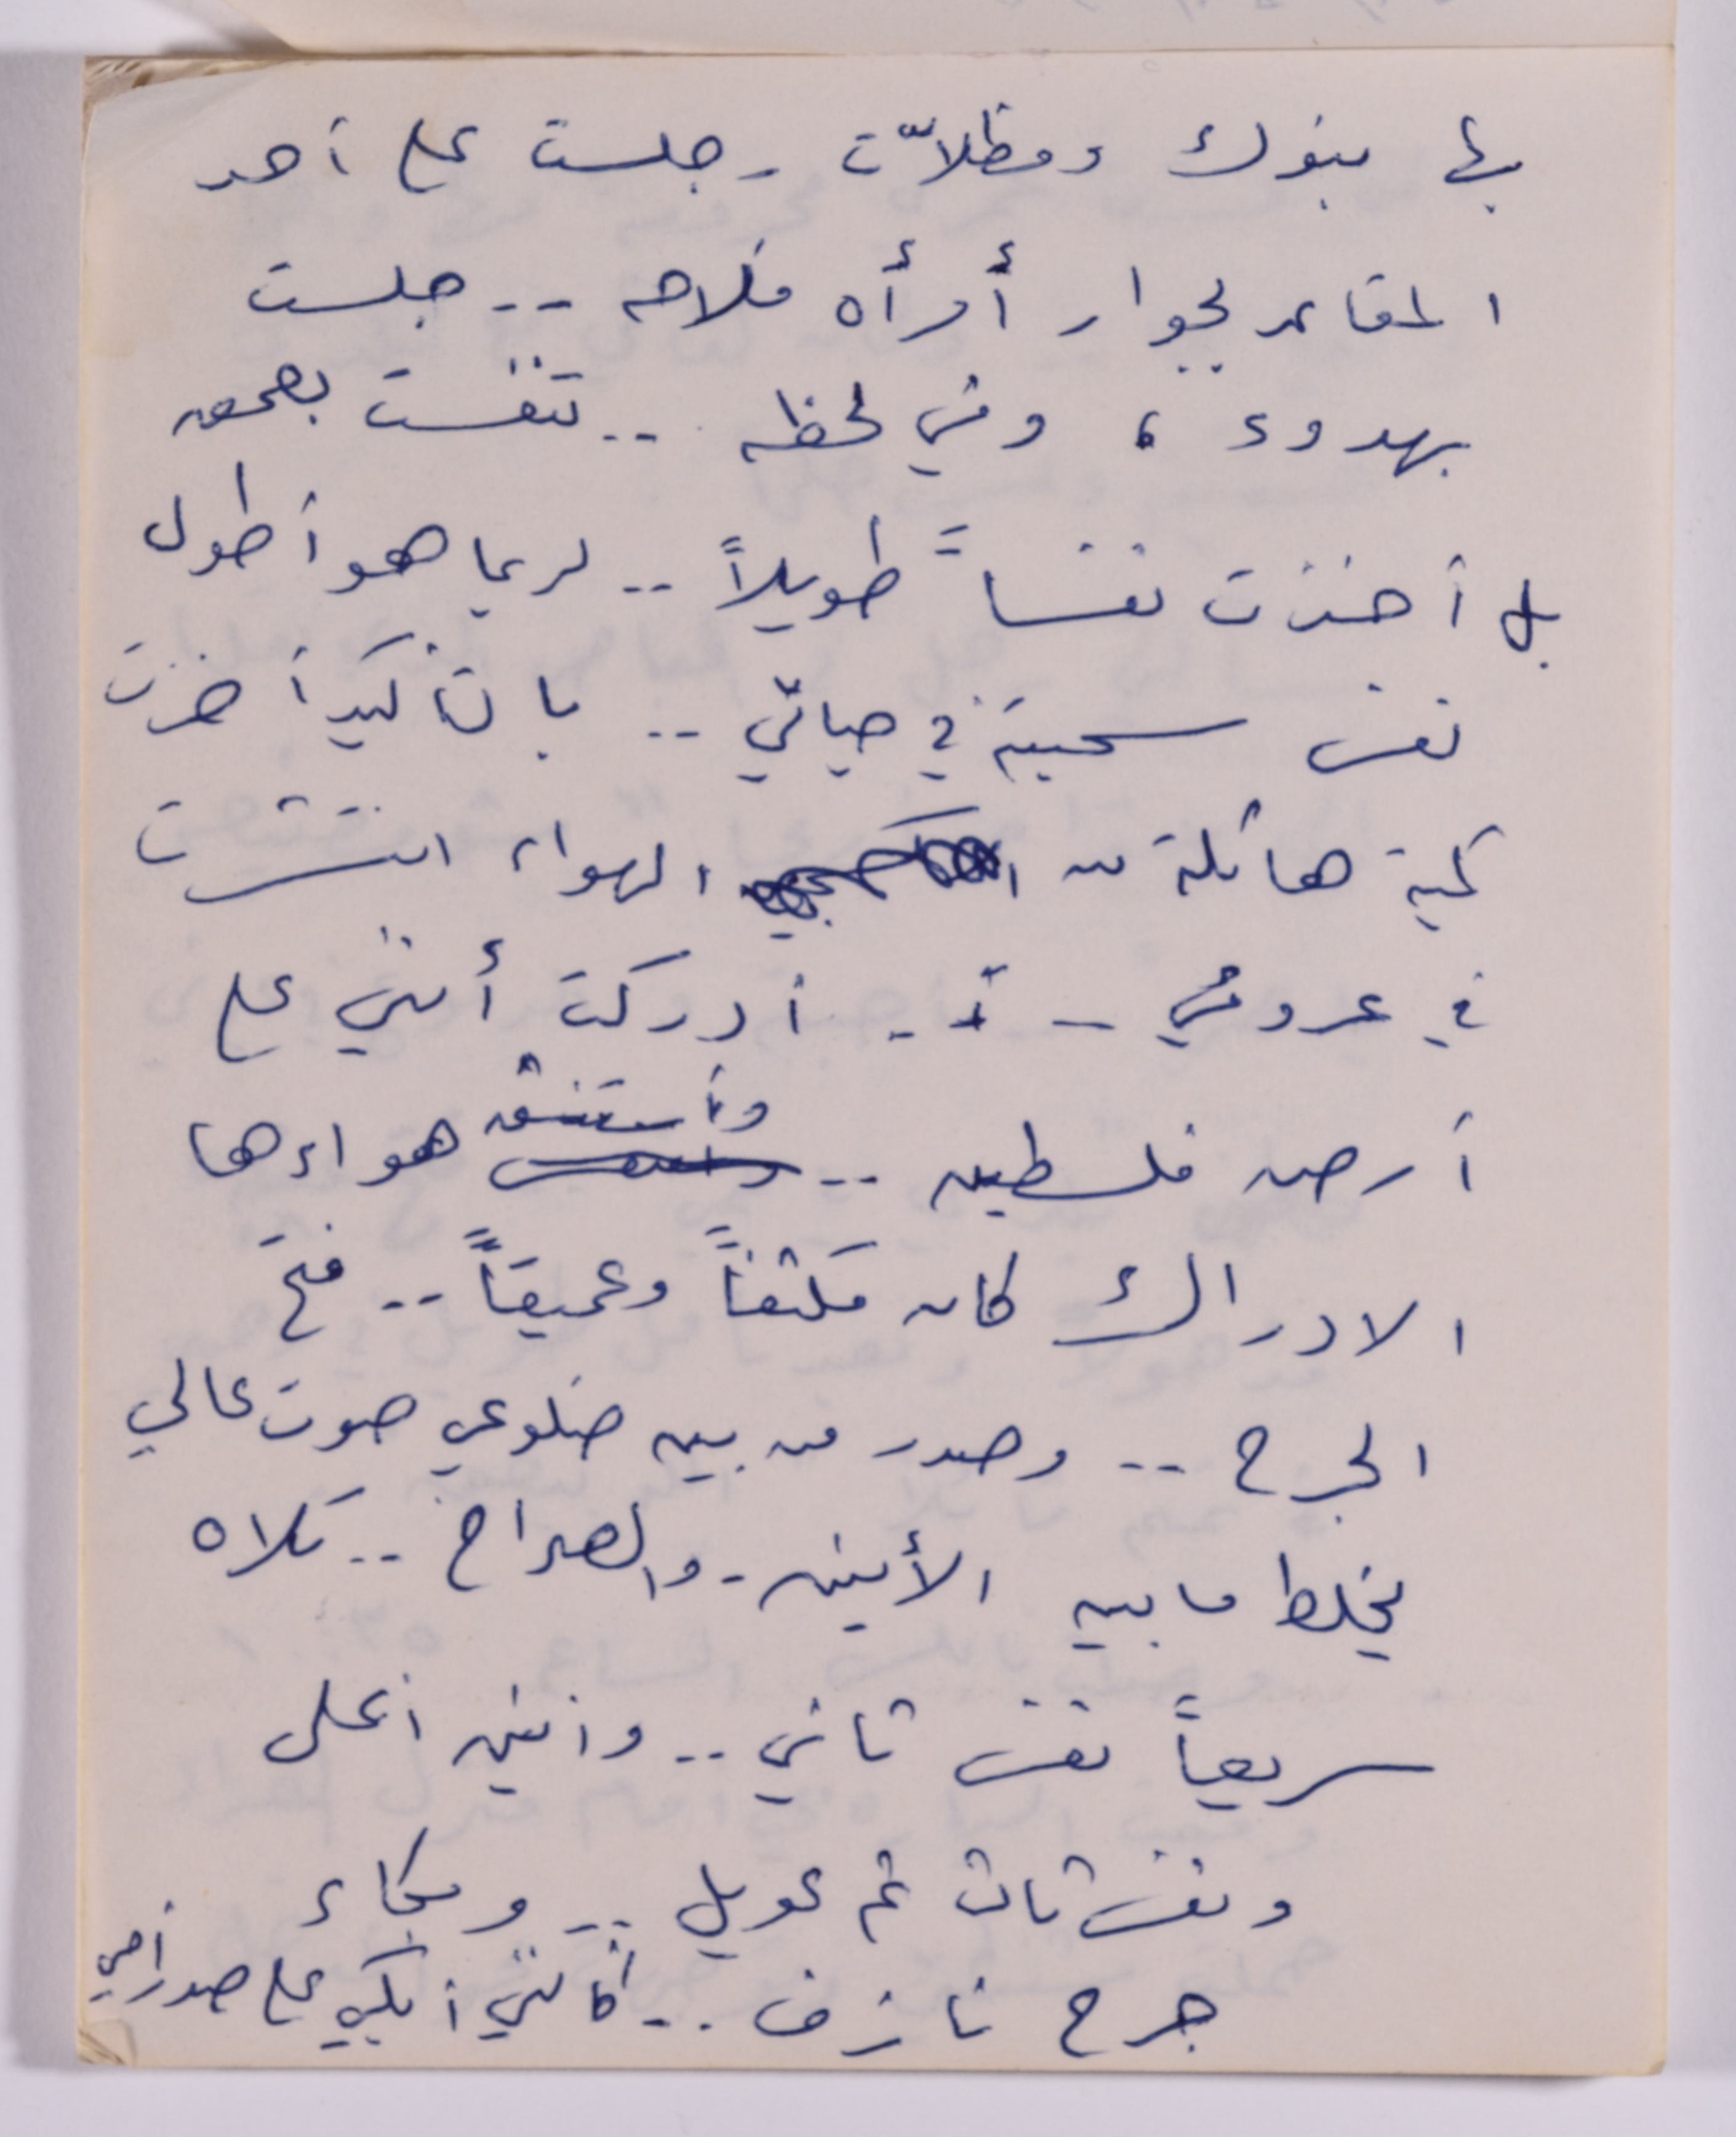 بها بنوك ومظلاّت . جلست على أحد
المقاعد بجوار أمرأه فلاحه .. جلست
بهدوء ، وفي لحظه .. تنفست بعمق
بل أخذت نفساً طويلاً .. لربما هو أطول
نفس سحبته في حياتي .. بالتأكيد أخذت
كمية هائلة من الهواء انتشرت
في عروقي .. أدركت أنني على
أرض فلسطين .. وأستنشق هواءها
الادراك كان مكثفاً وعميقاً .. فتح
الجرح .. وصدر من بين ضلوعي صوت عالي
يخلط ما بين الأنين . والصراخ .. تلاه
سريعاً نفس ثاني .. وأنين أعلى
ونفس ثالث ثم عويل .. وبكاء
جرح نازف .. كأنني أبكي على صدر أمي